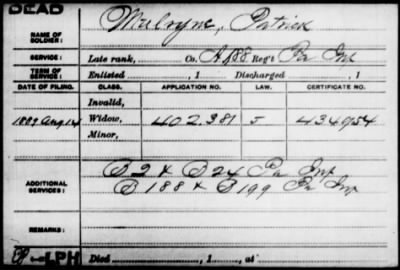 DEAD
NAME OF SOLDIER: Mulryne, Patrick
SERVICE: Late rank, Co. A, 188 Reg't Pa Inf
TERM OF SERVICE: Enlisted , 1 Discharged , 1
DATE OF FILING. CLASS. APPLICATION NO. LAW. CERTIFICATE NO.
Invalid,
1889 Aug 14 Widow, 402.381 J 434954
Minor,
ADDITIONAL SERVICES: B 2 & B 24 Pa Inf
B 188 & B 199 Pa Inf
REMARKS:
LPH Died , 1 , at